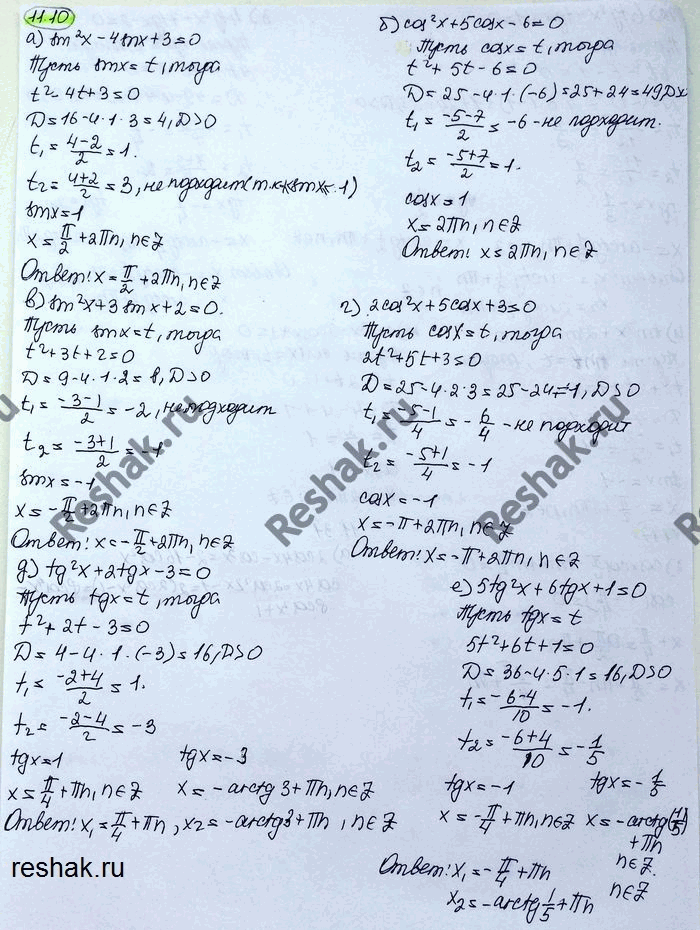 11.10
а) sin²x - 4sinx + 3 = 0
Пусть sinx = t, тогда
t² - 4t + 3 = 0
D = 16 - 4·1·3 = 4, D>0
t₁ = (4-2)/2 = 1.
t₂ = (4+2)/2 = 3, не подходит
sinx = 1
x = π/2 + 2πn, n∈Z
Ответ: x = π/2 + 2πn, n∈Z
б) cos²x + 5cosx - 6 = 0
Пусть cosx = t, тогда
t² + 5t - 6 = 0
D = 25 - 4·1·(-6) = 25 + 24 = 49,
t₁ = (-5-7)/2 = -6 - не подходит.
t₂ = (-5+7)/2 = 1.
cosx = 1
x = 2πn, n∈Z
Ответ: x = 2πn, n∈Z
в) sin²x + 3sinx + 2 = 0.
Пусть sinx = t, тогда
t² + 3t + 2 = 0
D = 9 - 4·1·2 = 1, D>0
t₁ = (-3-1)/2 = -2, не подходит
t₂ = (-3+1)/2 = -1
sinx = -1
x = -π/2 + 2πn, n∈Z
Ответ: x = -π/2 + 2πn, n∈Z
г) 2cos²x + 5cosx + 3 = 0
Пусть cosx = t, тогда
2t² + 5t + 3 = 0
D = 25 - 4·2·3 = 25 - 24 = 1, D>0
t₁ = (-5-1)/4 = -6/4 - не подходит
t₂ = (-5+1)/4 = -1
cosx = -1
x = -π + 2πn, n∈Z
Ответ: x = -π + 2πn, n∈Z
д) tg²x + 2tgx - 3 = 0
Пусть tgx = t, тогда
t² + 2t - 3 = 0
D = 4 - 4·1·(-3) = 16, D>0
t₁ = (-2+4)/2 = 1.
t₂ = (-2-4)/2 = -3
tgx = 1 tgx = -3
x = π/4 + πn, n∈Z x = -arctg3 + πn, n∈Z
Ответ: x₁ = π/4 + πn, x₂ = -arctg3 + πn, n∈Z
е) 5tg²x + 6tgx + 1 = 0
Пусть tgx = t
5t² + 6t + 1 = 0
D = 36 - 4·5·1 = 16, D>0
t₁ = (-6-4)/10 = -1.
t₂ = (-6+4)/10 = -1/5
tgx = -1 tgx = -1/5
x = -π/4 + πn, n∈Z x = -arctg(1/5)
+ πn
n∈Z.
Ответ: x₁ = -π/4 + πn n∈Z
x₂ = -arctg 1/5 + πn
Reshak.ru
Reshak.ru
Reshak.ru
reshak.ru